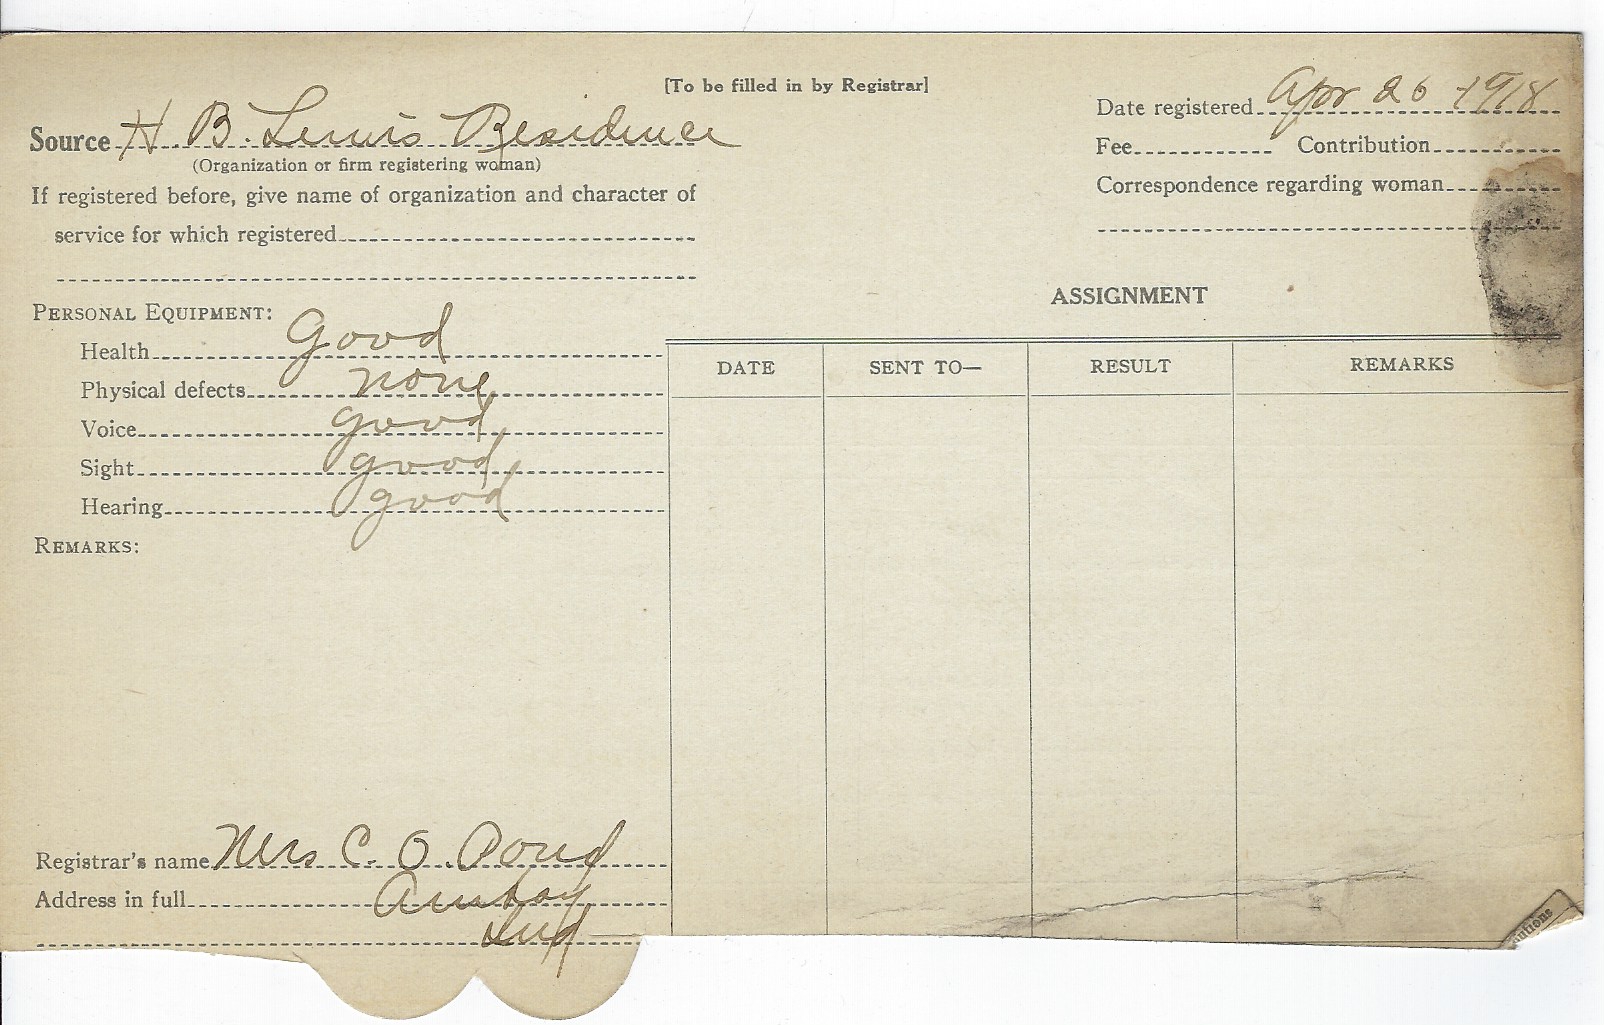 [To be filled in by Registrar]
Date registered Apr 26 1918
Source H. B. Lewis Residence
(Organization or firm registering woman)
Fee Contribution
If registered before, give name of organization and character of
service for which registered
Correspondence regarding woman
ASSIGNMENT
PERSONAL EQUIPMENT:
Health Good
Physical defects none
Voice good
Sight good
Hearing good
REMARKS:
DATE SENT TO— RESULT REMARKS
Registrar's name Mrs C. O.
Address in full Amboy
Ind
autions